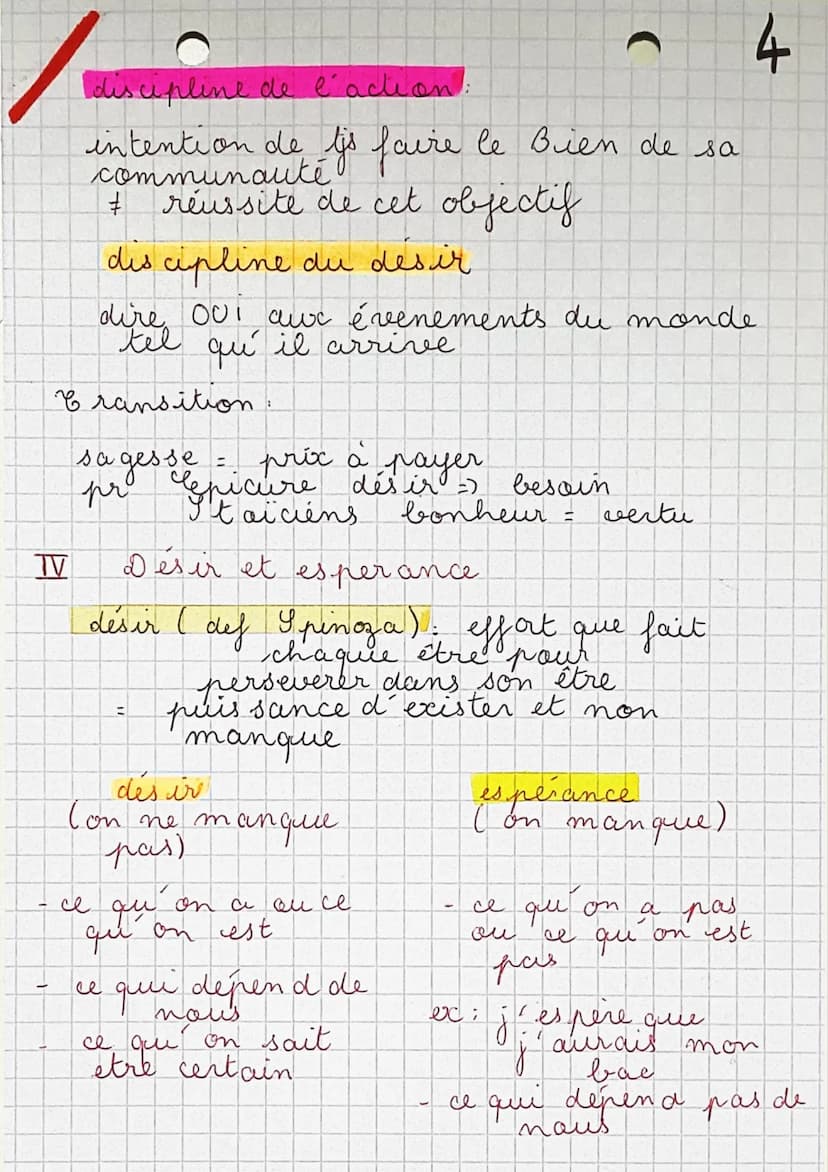 4
discipline de l'action :
intention de tjs faire le Bien de sa
communauté
≠ réussite de cet objectif
discipline du désir
dire OUi aux évenements du monde
tel qu'il arrive
Transition :
sagesse = prix à payer
pr Epicure désir => besoin
Stoïciens bonheur = vertu
IV Désir et esperance
désir ( def Spinoza) : effort que fait
chaque être pour
perseverer dans son être
= puissance d'exister et non
manque
désir
(on ne manque
pas)
- ce qu'on a ou ce
qu'on est
- ce qui dépend de
nous
- ce qu'on sait
etre certain
espérance
( on manque)
- ce qu'on a pas
ou ce qu'on est
pas
ex : j'espère que
j'aurais mon
bac
- ce qui dépend pas de
nous